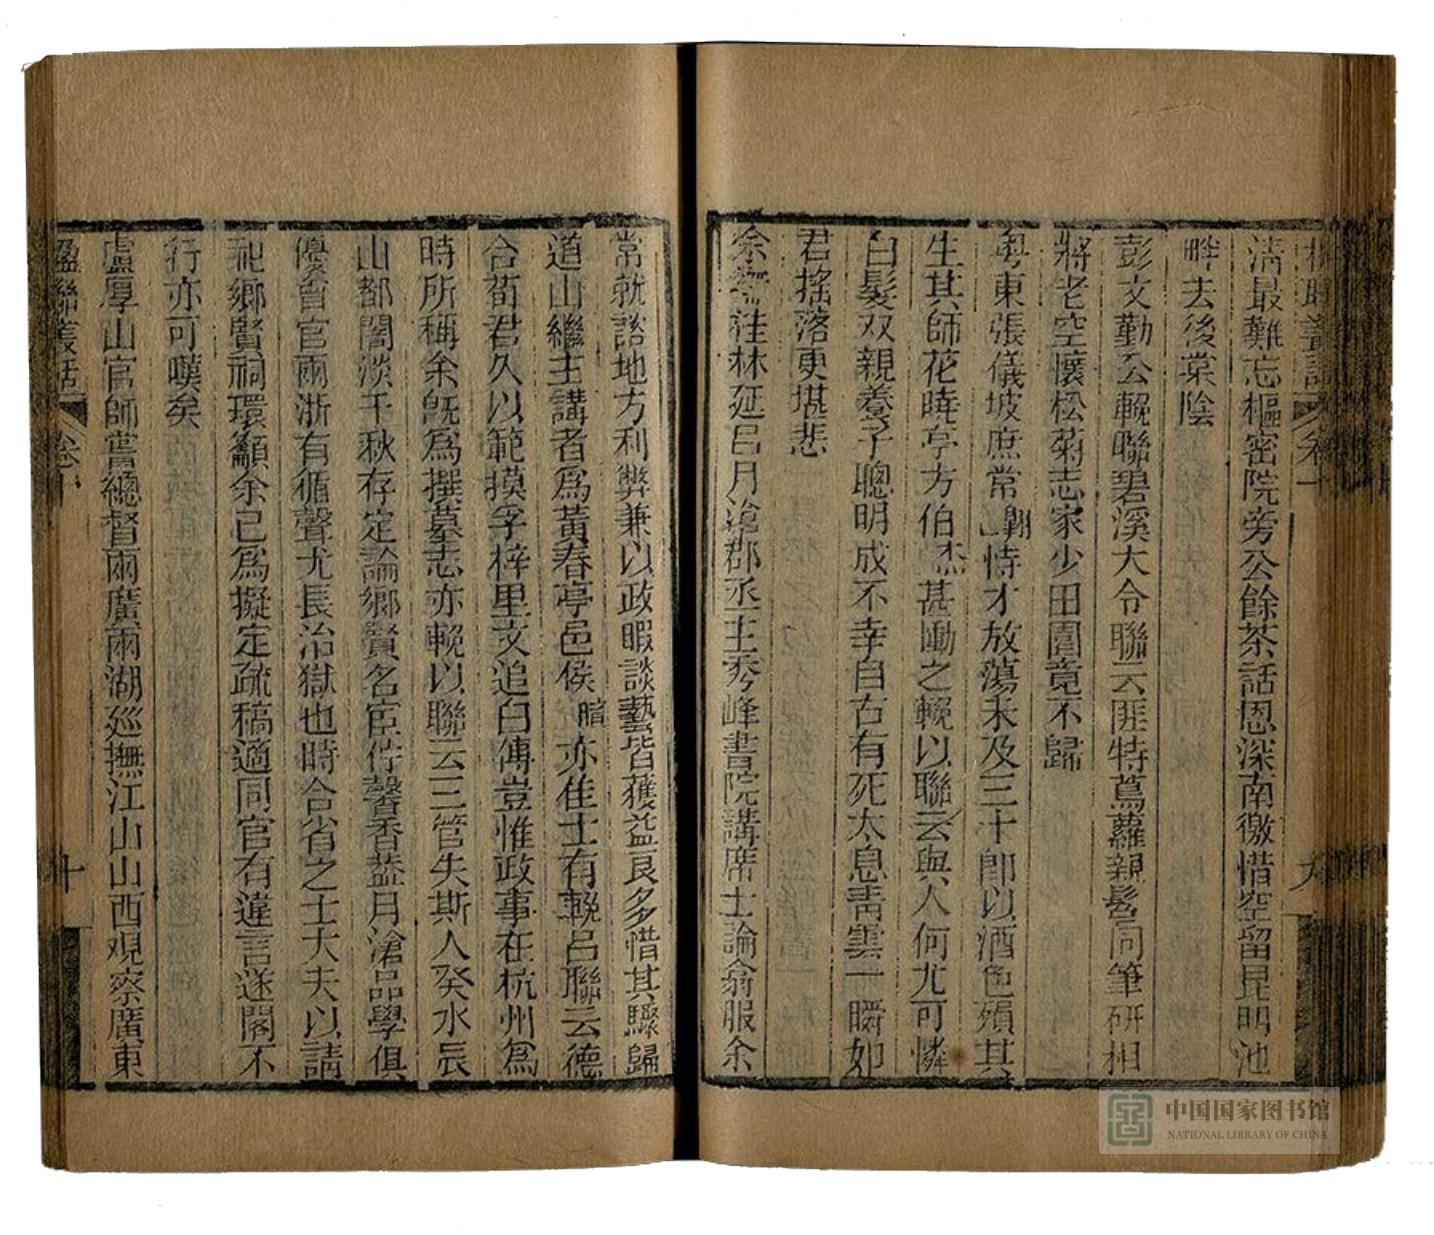 清最難忘樞密院旁公餘茶話恩深南徼惜空留昆明池
畔去後棠陰
彭文勤公輓聯碧溪大令聯云匪特蔦蘿親髫同筆研相
將老空懷松菊志家少田園竟不歸
粤東張儀坡庶常翺恃才放蕩未及三十卽以酒色殞其
生其師花曉亭方伯杰甚慟之輓以聯云與人何尤可憐
白髮双親養子聰明成不幸自古有死太息靑雲一瞬如
君搖落更堪悲
余桂林延呂月滄郡丞主秀峰書院講席士論翕服余
常就諮地方利弊兼以政暇談藝皆獲益良多惜其驟歸
道山繼主講者爲黃春亭邑侯暄亦佳士有輓呂聯云德
合荀君久以範摸孚梓里文追臼傳豈惟政事在杭州爲
時所稱余旣爲撰墓志亦輓以聯云三管失斯人癸水辰
山都闇淡千秋存定論鄉賢名宦佇馨香葢月滄品學俱
優嘗官兩浙有循聲尤長治獄也時合省之士大夫以請
祀鄉賢祠環籲余已爲擬定疏稿適同官有違言遂閣不
行亦可嘆矣
盧厚山官師嘗總督兩廣兩湖廵撫江山山西觀察廣東
楹聯叢話 卷十 十
中国国家图书馆
NATIONAL LIBRARY OF CHINA